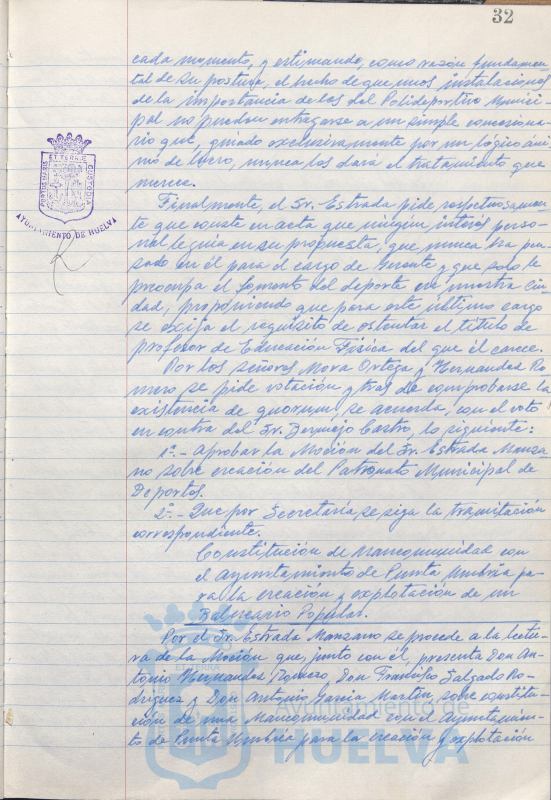 32
cada momento, y estimando, como razón fundamen
tal de su postura, el hecho de que unas instalaciones
de la importancia de las del Polideportivo Munici-
pal no puedan entregarse a un simple concesiona-
rio que, guiado exclusivamente por un lógico áni-
mo de lucro, nunca les dará el tratamiento que
merece.
Finalmente, el Sr. Estrada pide respetuosamen-
te que conste en acta que ningún interés perso-
nal le guía en su propuesta, que nunca ha pen-
sado en él para el cargo de Gerente y que solo le
preocupa el fomento del deporte en nuestra Ciu-
dad, proponiendo que para este último cargo
se exija el requisito de ostentar el título de
profesor de Educación Física del que él carece.
Por los señores Mora Ortega y Hernandez Ro
mero se pide votación y tras de comprobarse la
existencia de quorum, se acuerda, con el voto
en contra del Sr. Bermejo Castro, lo siguiente:
1º.- Aprobar la Moción del Sr. Estrada Manza
no sobre creación del Patronato Municipal de
Deportes.
2º.- Que por Secretaría, se siga la tramitación
correspondiente.
Constitución de Mancomunidad con
el Ayuntamiento de Punta Umbría pa-
ra la creación y explotación de un
Balneario Popular.
Por el Sr. Estrada Manzano se procede a la lectu-
ra de la Moción que, junto con él, presenta Don An-
tonio Hernandez Romero, Don Francisco Salgado Ro-
driguez y Don Antonio Garcia Martín, sobre constitu-
ción de una Mancomunidad con el Ayuntamien-
to de Punta Umbría para la creación y explotación
PORTUS MARIS ET TERRAE CUSTODIA
AYUNTAMIENTO DE HUELVA
Ayuntamiento de
HUELVA